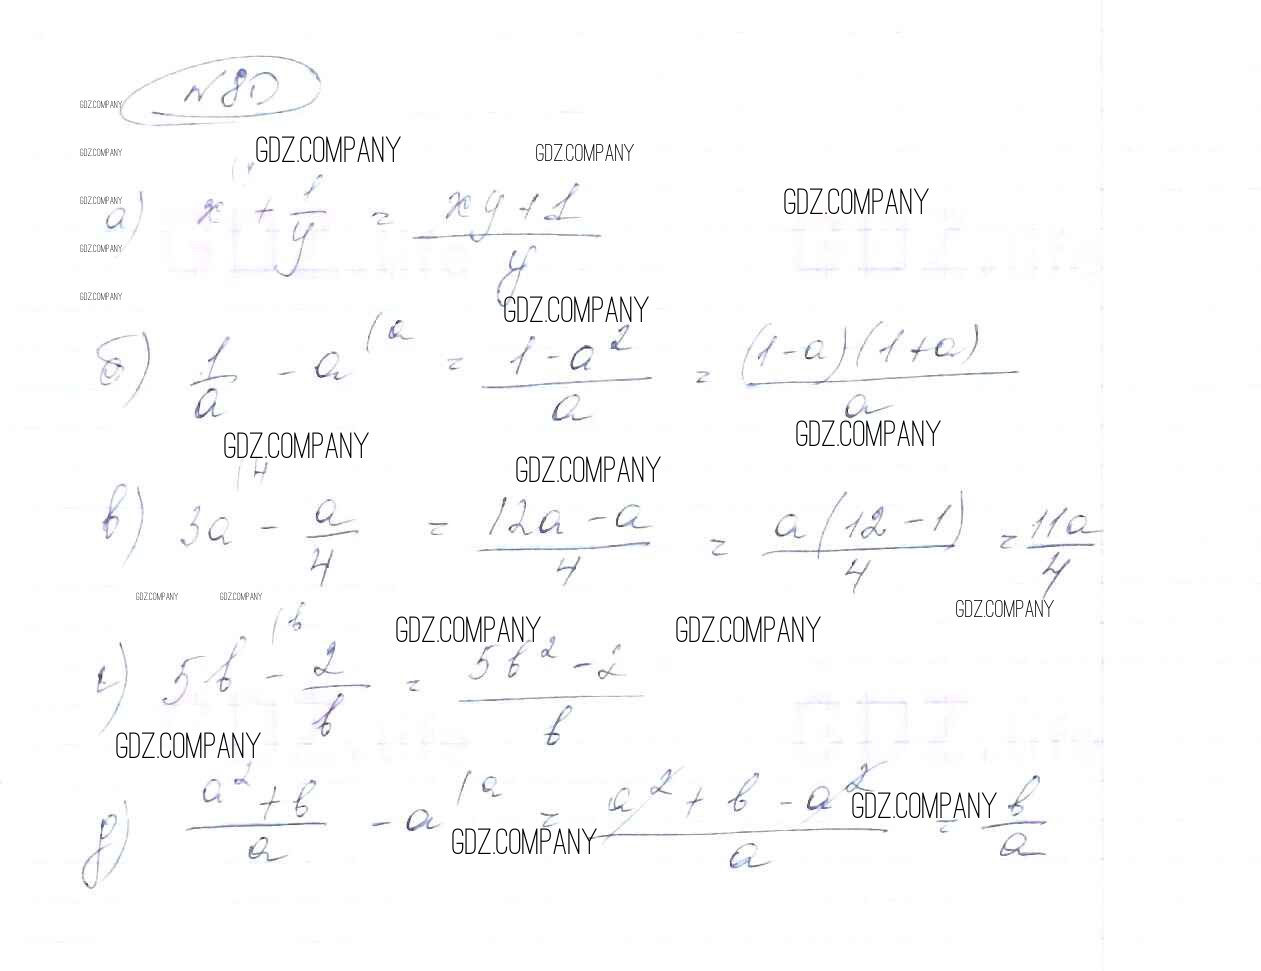 N 80
GDZ.COMPANY
GDZ.COMPANY GDZ.COMPANY GDZ.COMPANY
GDZ.COMPANY GDZ.COMPANY
а) x + 1/y = (xy+1)/y
GDZ.COMPANY
GDZ.COMPANY GDZ.COMPANY
б) 1/a - a (a = (1-a²)/a = (1-a)(1+a)/a
GDZ.COMPANY GDZ.COMPANY
GDZ.COMPANY
в) 3a (4 - a/4 = (12a-a)/4 = a(12-1)/4 = 11a/4
GDZ.COMPANY GDZ.COMPANY GDZ.COMPANY
GDZ.COMPANY GDZ.COMPANY
г) 5b (b - 2/b = (5b²-2)/b
GDZ.COMPANY
д) (a²+b)/a - a (a = (a²+b-a²)/a = b/a
GDZ.COMPANY
GDZ.COMPANY